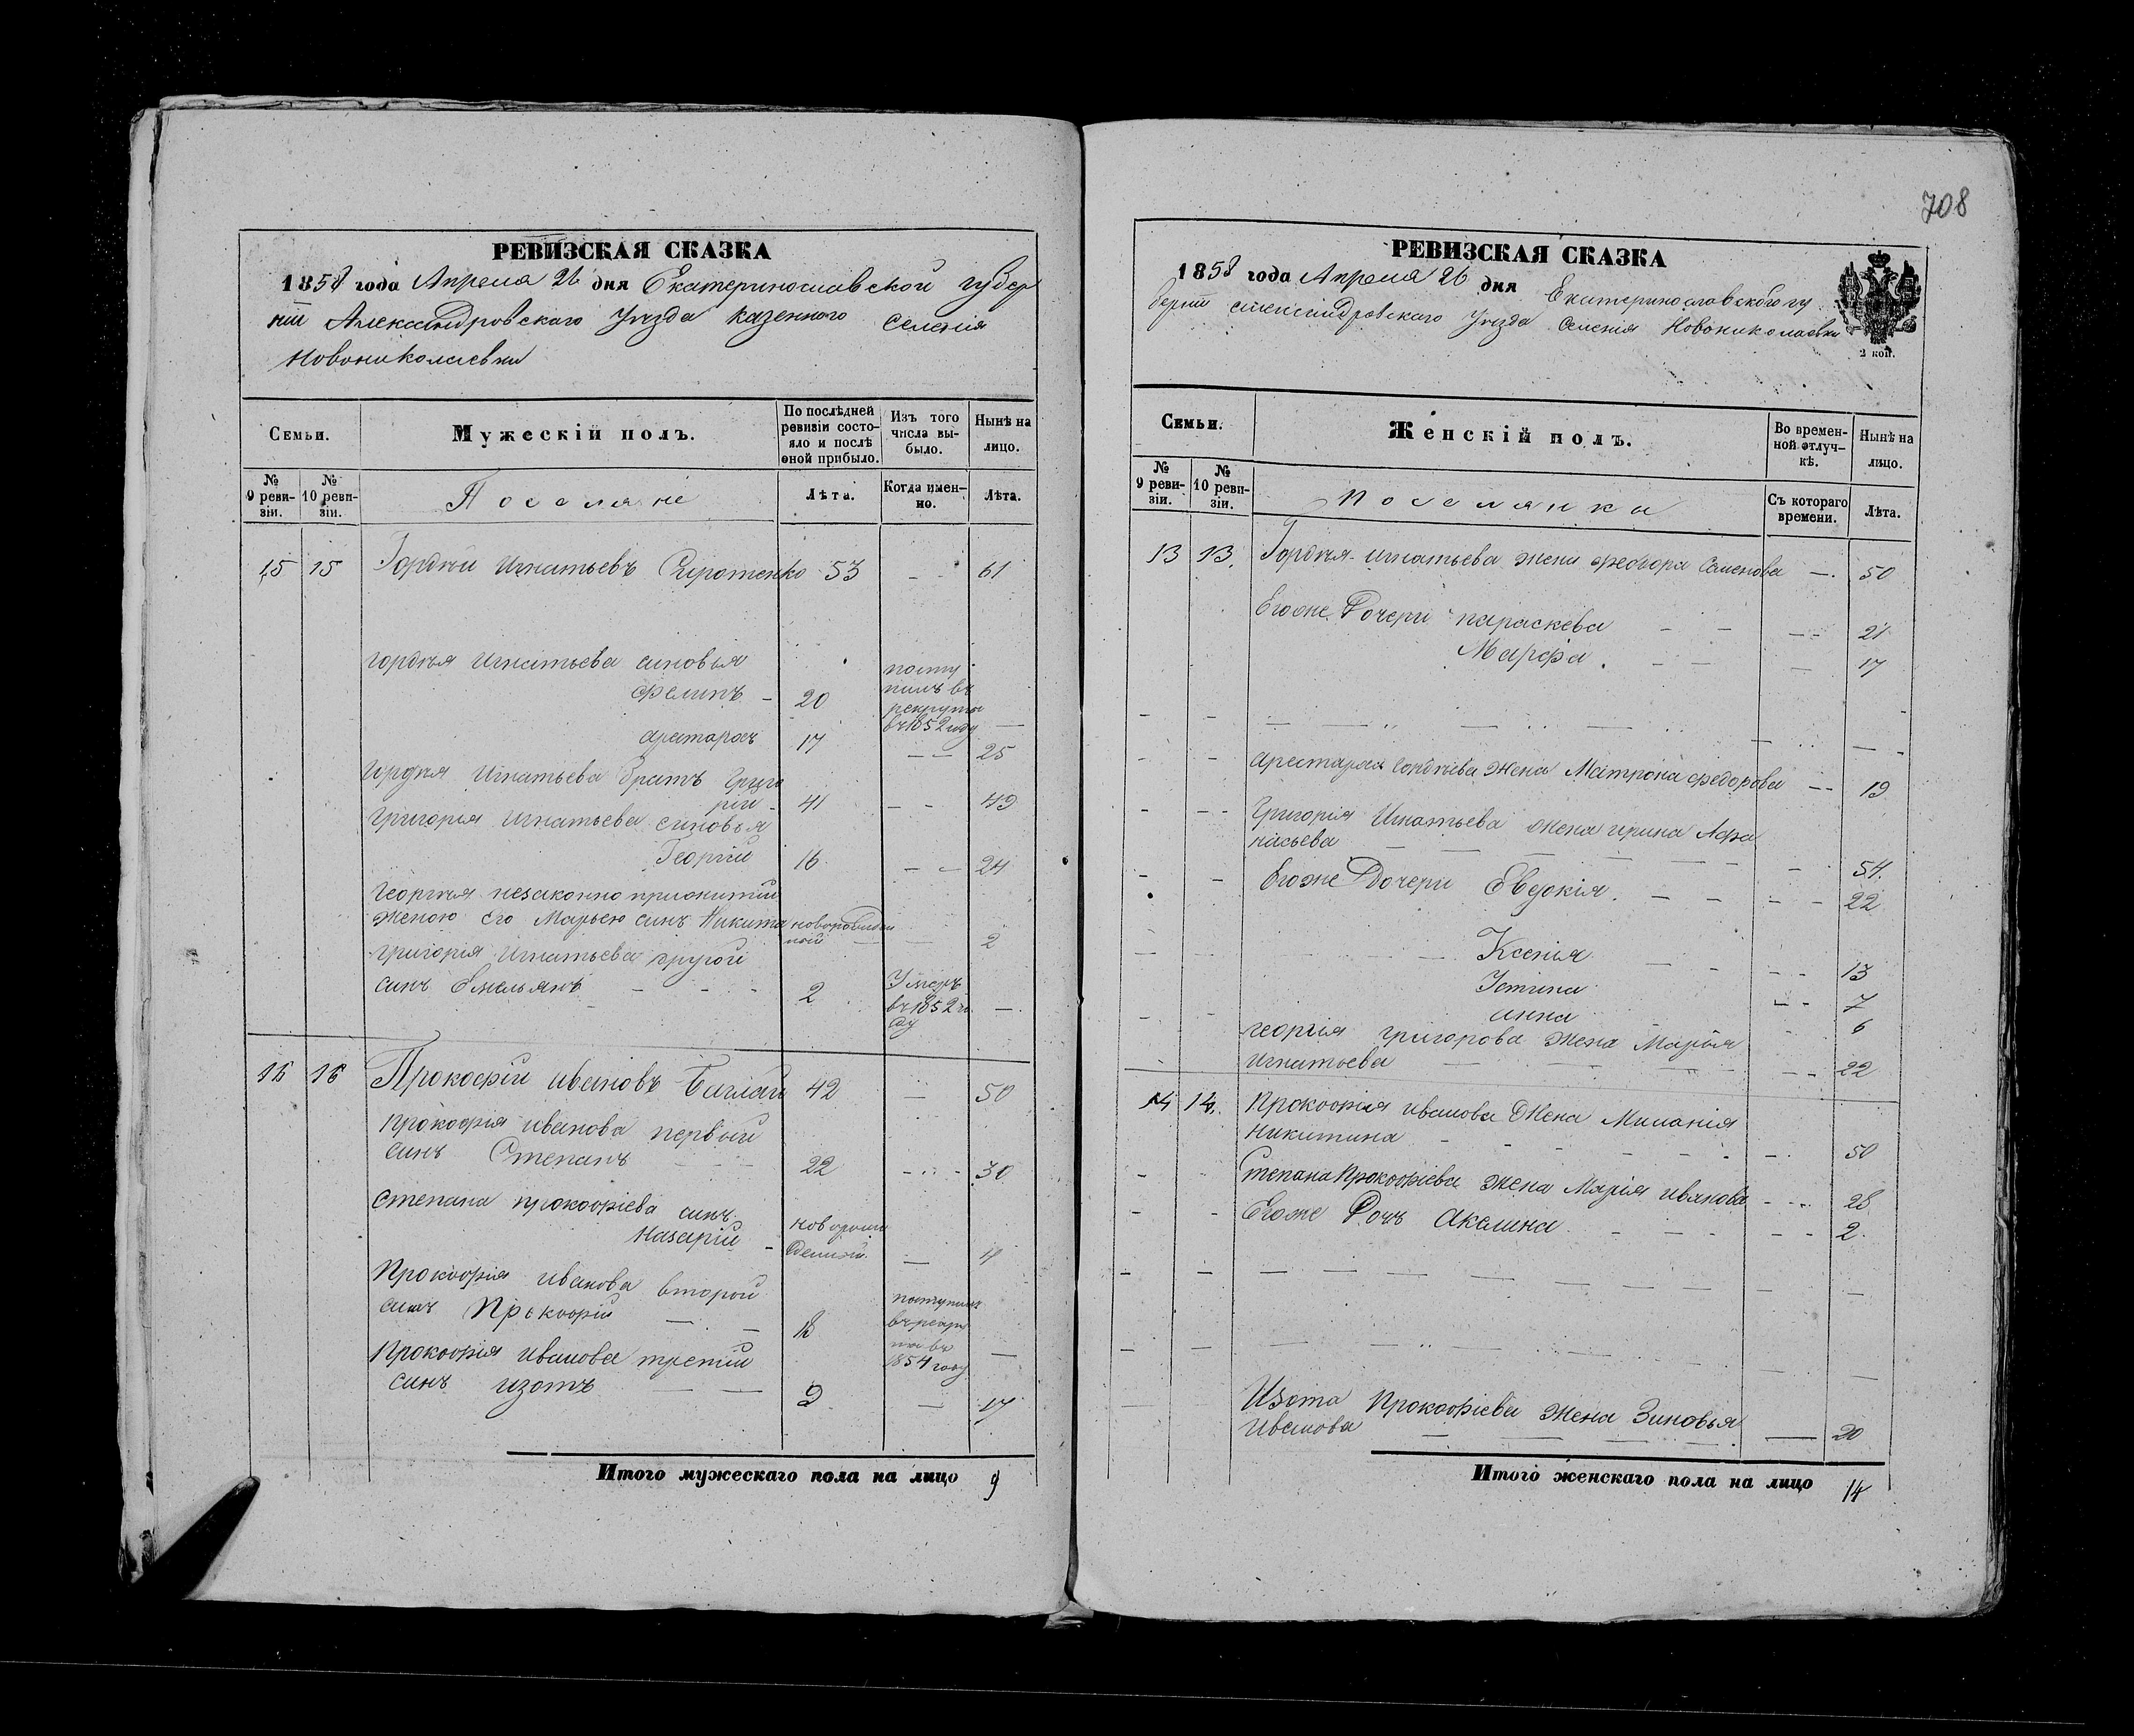 РЕВИЗСКАЯ СКАЗКА
1858 года Апреля 26 дня Екатеринославской губер
нiи Александровскаго Уезда казенного Селенiя
Новониколаевки
Семьи.
Мужескiй полъ.
По послѣдней ревизiи состо-
яло и послѣ
оной прибыло.
Изъ того
числа вы-
было.
Нынѣ на
лицо.
№
9 реви-
зiи.
№
10 реви-
зiи.
Поселяне
Лѣта.
Когда имен-
но.
Лѣта.
15 15 Гордѣй Игнатьевъ 53 — 61
Гордѣя Игнатьева синовья
Филипъ 20 посту
пилъ въ
рекруты
въ 1852 году —
аристархъ 17 — — 25
Гордѣя Игнатьева братъ Григо
рiи 41 — — 49
Григорiя Игнатьева синовья
Георгiй 16 — — 24
Георгiя незаконно прижитый
женою его Марьею синъ Никита новорожден
ной — 2
Григорiя Игнатьева другой
синъ Емельянъ — — — 2 Умеръ
въ 1852 го
ду —
16 16 Прокофiй Ивановъ Баглай 42 — 50
Прокофiя Иванова первый
синъ Степанъ 22 — 30
Степана Прокофiева синъ
Назарiй новорож
денной — 4
Прокофiя Иванова второй
синъ Прокофiй — — 18 поступилъ
въ рекру
ты въ
1854 году —
Прокофiя Иванова третiй
синъ Изотъ — — 9 — 17
Итого мужескаго пола на лицо 9
708
РЕВИЗСКАЯ СКАЗКА
1858 года Апреля 26 дня Екатеринославского гу
бернiи Александровскаго Уезда Селенiя Новониколаевки
2 коп.
Семьи.
Женскiй полъ.
Во времен-
ной отлуч-
кѣ.
Нынѣ на
лицо.
№
9 реви-
зiи.
№
10 реви-
зiи.
Поселянки
Съ котораго
времени.
Лѣта.
13 13. Гордѣя Игнатьева жена Федора Семенова — 50
Егоже Дочери параскева — — — 21
Марфа — — — 17
Аристарха Гордѣева жена Матрона Федорова — 19
Григорiя Игнатьева жена Ирина Афа
насьева — 54.
Егоже Дочери Евдокiя. — — — 22
Ксенiя — — 13
Устина — — 7
анна 6
Георгiя Григорова жена Марья
Игнатьева — — 22
14 14. Прокофiя Иванова Жена Миланiя
Никитина — — 50
Степана Прокофiева жена Марiя Иванова — 28
Егоже Дочь Акалина — — 2.
Изота Прокофiева жена Зиновья
Иванова — — 20
Итого женскаго пола на лицо 14